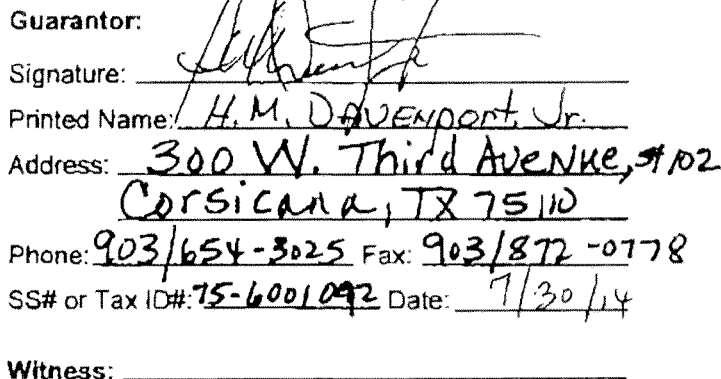 Guarantor:
Signature:
Printed Name: H.M. Davenport, Jr.
Address: 300 W. Third Avenue, #102
Corsicana, TX 75110
Phone: 903/654-3025 Fax: 903/872-0778
SS# or Tax ID#: 75-6001092 Date: 7/30/14
Witness: